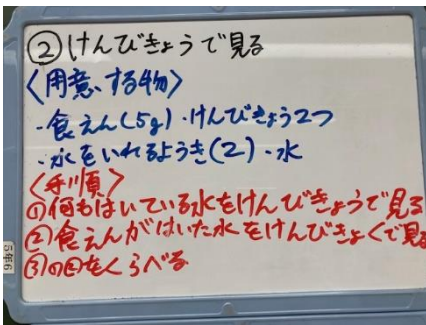 ②けんびきょうで見る
〈用意する物〉
・食えん(5g)・けんびきょう2つ
・水をいれるようき(2)・水
〈手順〉
①何もはいている水をけんびきょうで見る
②食えんがはいた水をけんびきょくで見
③の図をくらべる
5年6